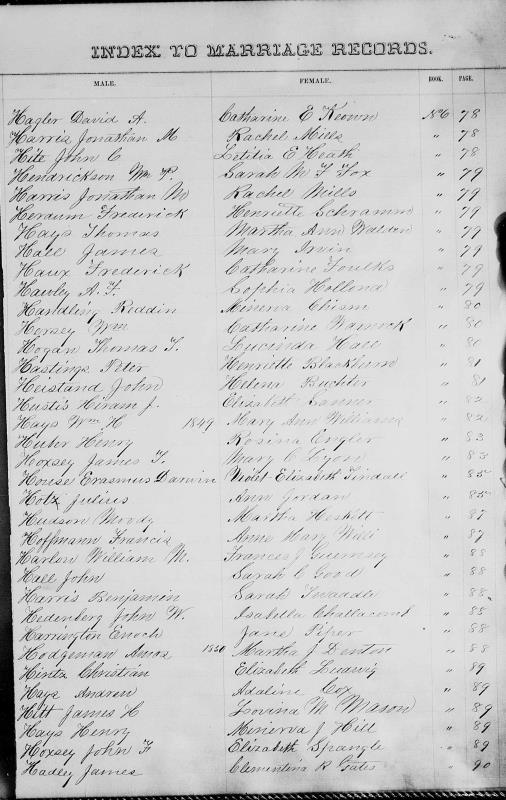 INDEX TO MARRIAGE RECORDS.
MALE. FEMALE. BOOK. PAGE.
Hagler David A. Catharine E Keown No 6 78
Harris Jonathan M Rachel Mills " 78
Hite John C Letitia E Heath " 78
Hendrickson Wm P. Sarah M F Fox " 79
Harris Jonathan M Rachel Mills " 79
Heraum Frederick Henriette Schramm " 79
Hays Thomas Martha Ann Walden " 79
Hall James Mary Irwin " 79
Haux Frederick Catharine Foulks " 79
Hawley A. F. Sophia Hollond " 79
Handling Reddin Minerva Chism " 80
Horsey Wm Catharine " 80
Hogan Thomas T. Lucinda Hall " 80
Hastings Peter Henriette Blackburn " 81
Heistand John Helena Buchter " 81
Hustis Hiram J. Elizabeth Lanner " 82
Hays Wm H 1849 Mary Ann Williams " 82
Huter Henry Rosina Engler " 83
Hoxsey James T. Mary C Lyon " 83
House Erasmus Darwin Violet Elizabeth Tindall " 85
Hotz Julius Ann Jordan " 85
Hudson Moody Martha Heskitt " 87
Hoffmann Francis Anne Mary Will " 87
Harlow William M. Frances J Guernsey " 88
Hall John Sarah C Good " 88
Harris Benjamin Sarah Twaddle " 88
Hedenberg John W. Isabella Challacomb " 88
Harrington Enoch Jane Piper " 88
Hodgeman Amos 1850 Martha J Denton " 88
Hintz Christian Elizabeth Ludwig " 89
Hays Andrew Adaline Cox " 89
Hitt James H Lovina M Mason " 89
Hays Henry Minerva J Hill " 89
Hoxsey John F. Elizabeth Spangle " 89
Hadley James Clementina R Gates " 90